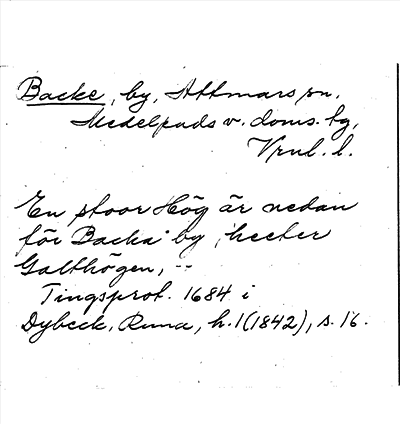 Backe, by, Attmars sn.
Medelpads v. doms. tg,
Vrnl. l.
En stoor Hög är nedan
för Backa by, heeter
Galthögen, --
Tingsprot. 1684 i
Dybeck, Runa, h. 1 (1842), s. 16.